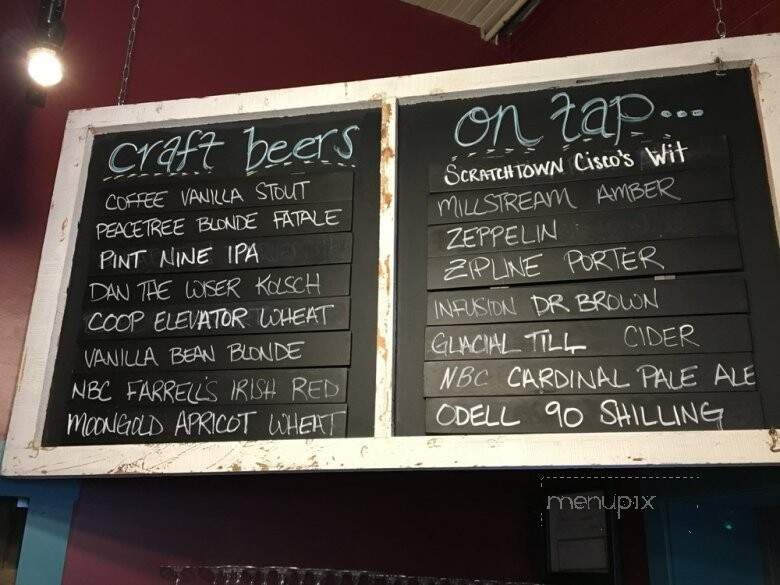 craft beers
COFFEE VANILLA STOUT
PEACETREE BLONDE FATALE
PINT NINE IPA
DAN THE WISER KOLSCH
COOP ELEVATOR WHEAT
VANILLA BEAN BLONDE
NBC FARRELL'S IRISH RED
MOONGOLD APRICOT WHEAT
on tap...
SCRATCHTOWN CISCO'S WIT
MILLSTREAM AMBER
ZEPPELIN
ZIPLINE PORTER
INFUSION DR BROWN
GLACIAL TILL CIDER
NBC CARDINAL PALE ALE
ODELL 90 SHILLING
menupix